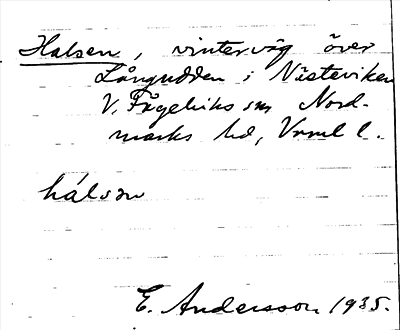 Halsen, vinterväg över
Långudden i Nästeviken
V. Fågelviks sn Nord-
marks hd, Vrml l.
hálsɷn
E. Andersson 1935.